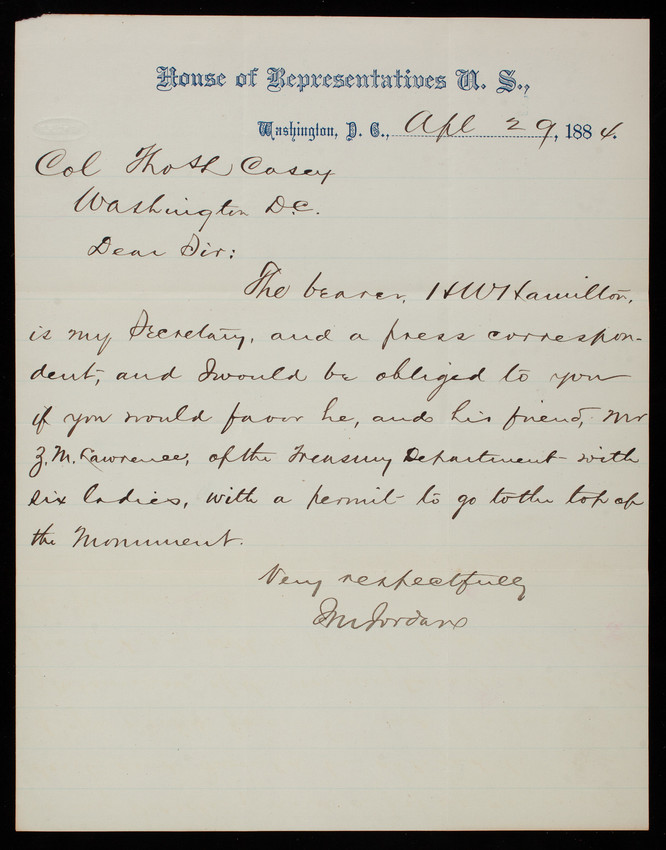 House of Representatives U. S.,
Washington, D. C., Apl 29, 1884.
Col Thos L Casey
Washington D.C.
Dear Sir:
The bearer, H W Hamilton,
is my Secretary, and a press correspon-
dent, and I would be obliged to you
if you would favor he, and his friend, Mr
Z. M. Lawrence, of the Treasury Department with
six ladies, with a permit to go to the top of
the Monument.
Very respectfully
Jordan